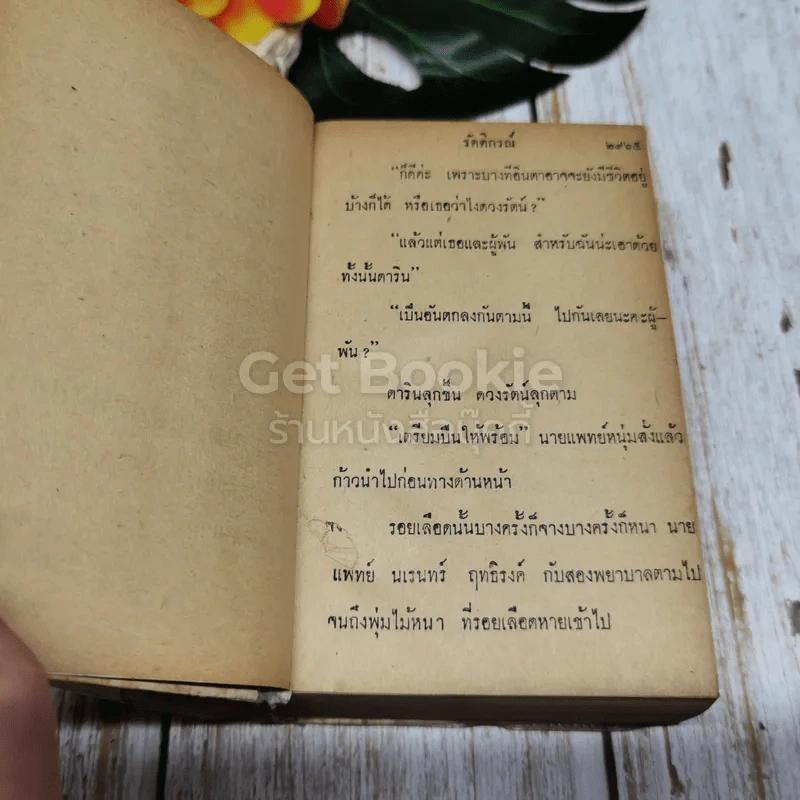 รัตติกรณ์ ๒๙๖๕
"ก็ดีค่ะ เพราะบางทีอินตาอาจจะยังมีชีวิตอยู่
บ้างก็ได้ หรือเธอว่าไงดวงรัตน์?"
"แล้วแต่เธอและผู้พัน สำหรับฉันน่ะเอาด้วย
ทั้งนั้นดาริน"
"เป็นอันตกลงกันตามนี้ ไปกันเลยนะคะผู้–
พัน?"
ดารินลุกขึ้น ดวงรัตน์ลุกตาม
"เตรียมปืนให้พร้อม" นายแพทย์หนุ่มสั่งแล้ว
ก้าวนำไปก่อนทางด้านหน้า
รอยเลือดนั้นบางครั้งก็จางบางครั้งก็หนา นาย
แพทย์ นเรนทร์ ฤทธิรงค์ กับสองพยาบาลตามไป
จนถึงพุ่มไม้หนา ที่รอยเลือดหายเข้าไป
Get Bookie
ร้านหนังสือบุ๊คกี้